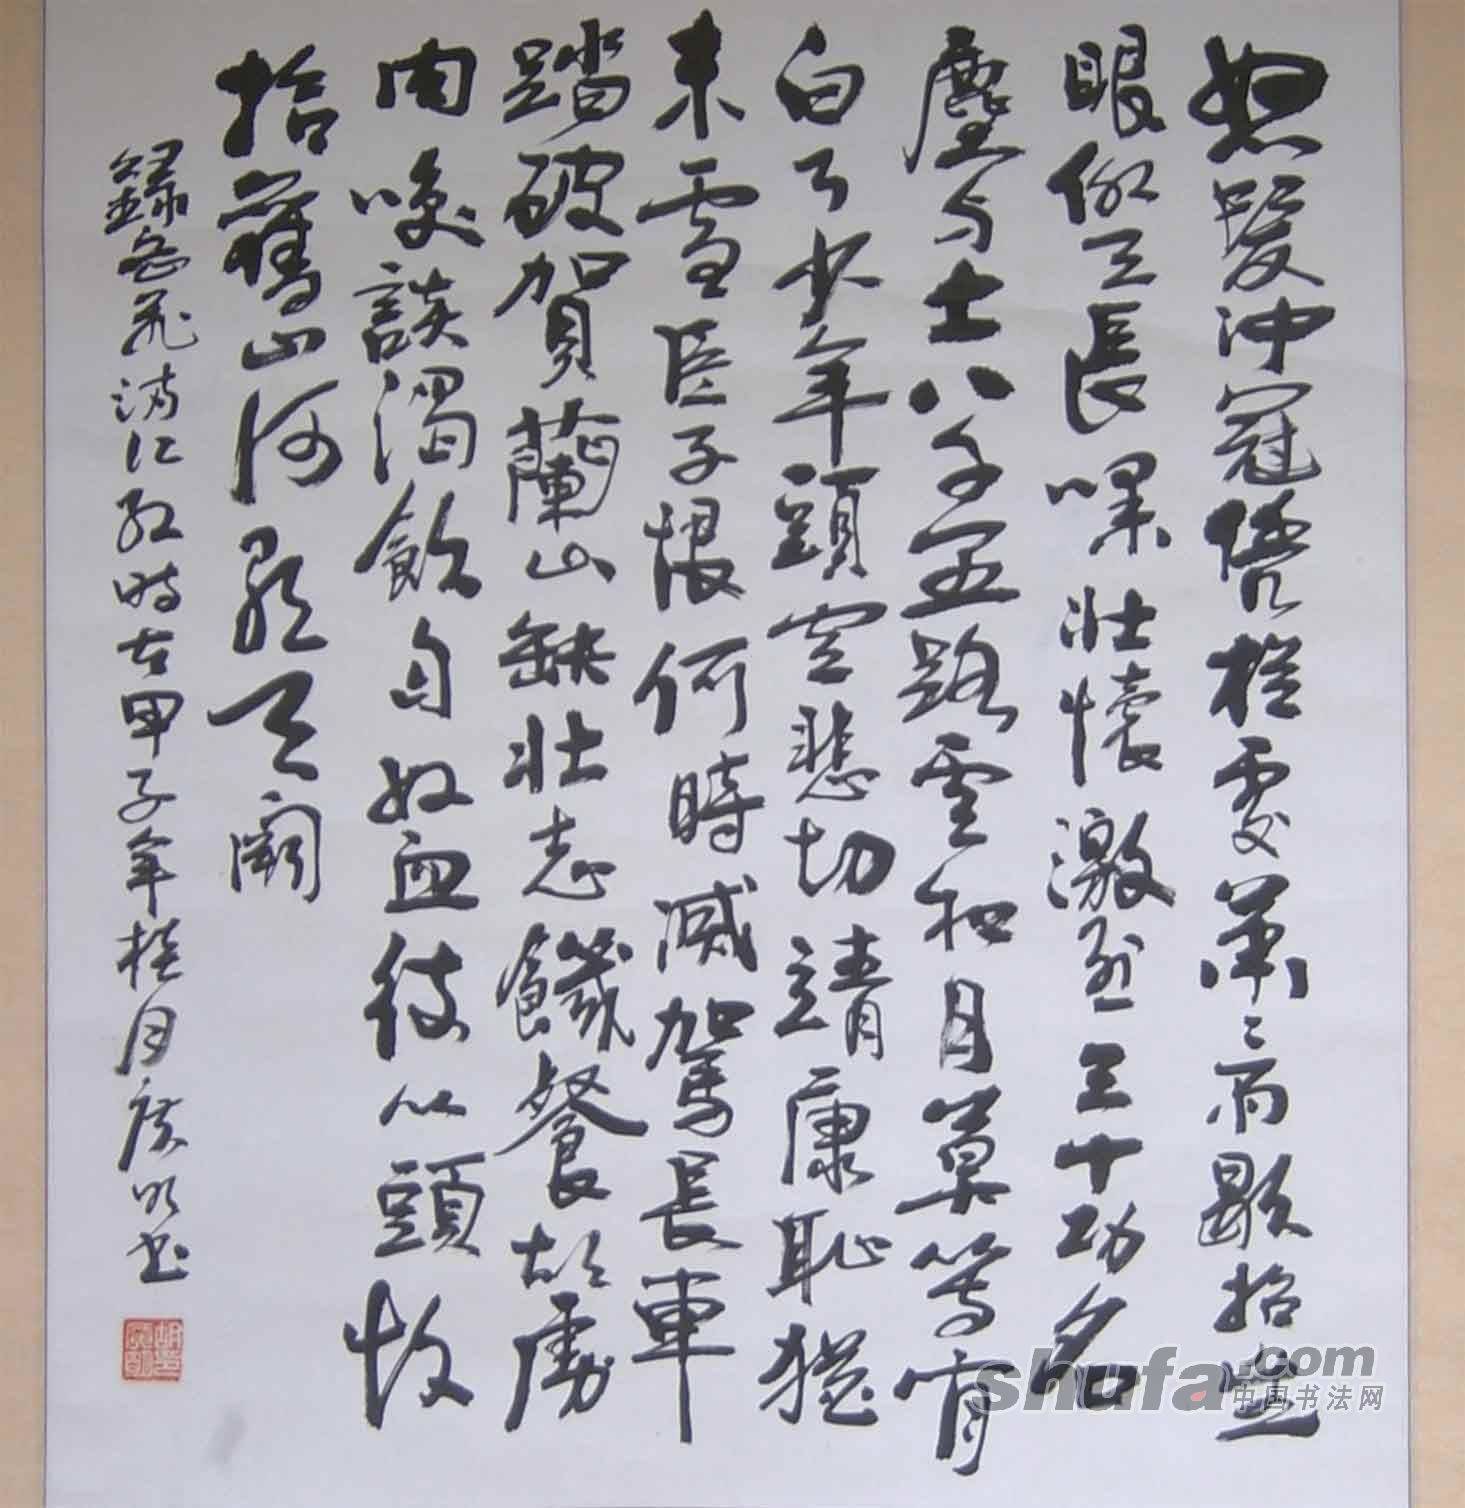 怒髮冲冠憑栏處萧〻雨歇抬望
眼仰天長嘯壯懷激烈三十功名
塵与土八千里路雲和月莫等闲
白了少年頭空悲切靖康恥猶
未雪臣子恨何時滅駕長車
踏破賀蘭山缺壯志饑餐胡虜
肉咲談渴飲匈奴血待从頭收
拾舊山河朝天闕
錄岳飛满江红時在甲子年桂月书
shufa.com
中国书法网